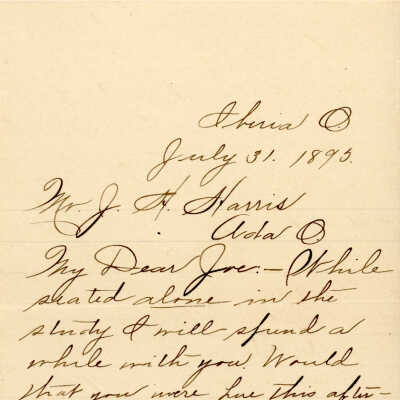 Iberia O.
July 31. 1893.
Mr. J. H. Harris
Ada O.
My Dear Joe:- While
seated alone in the
study I will spend a
while with you. Would
that you were here this after-